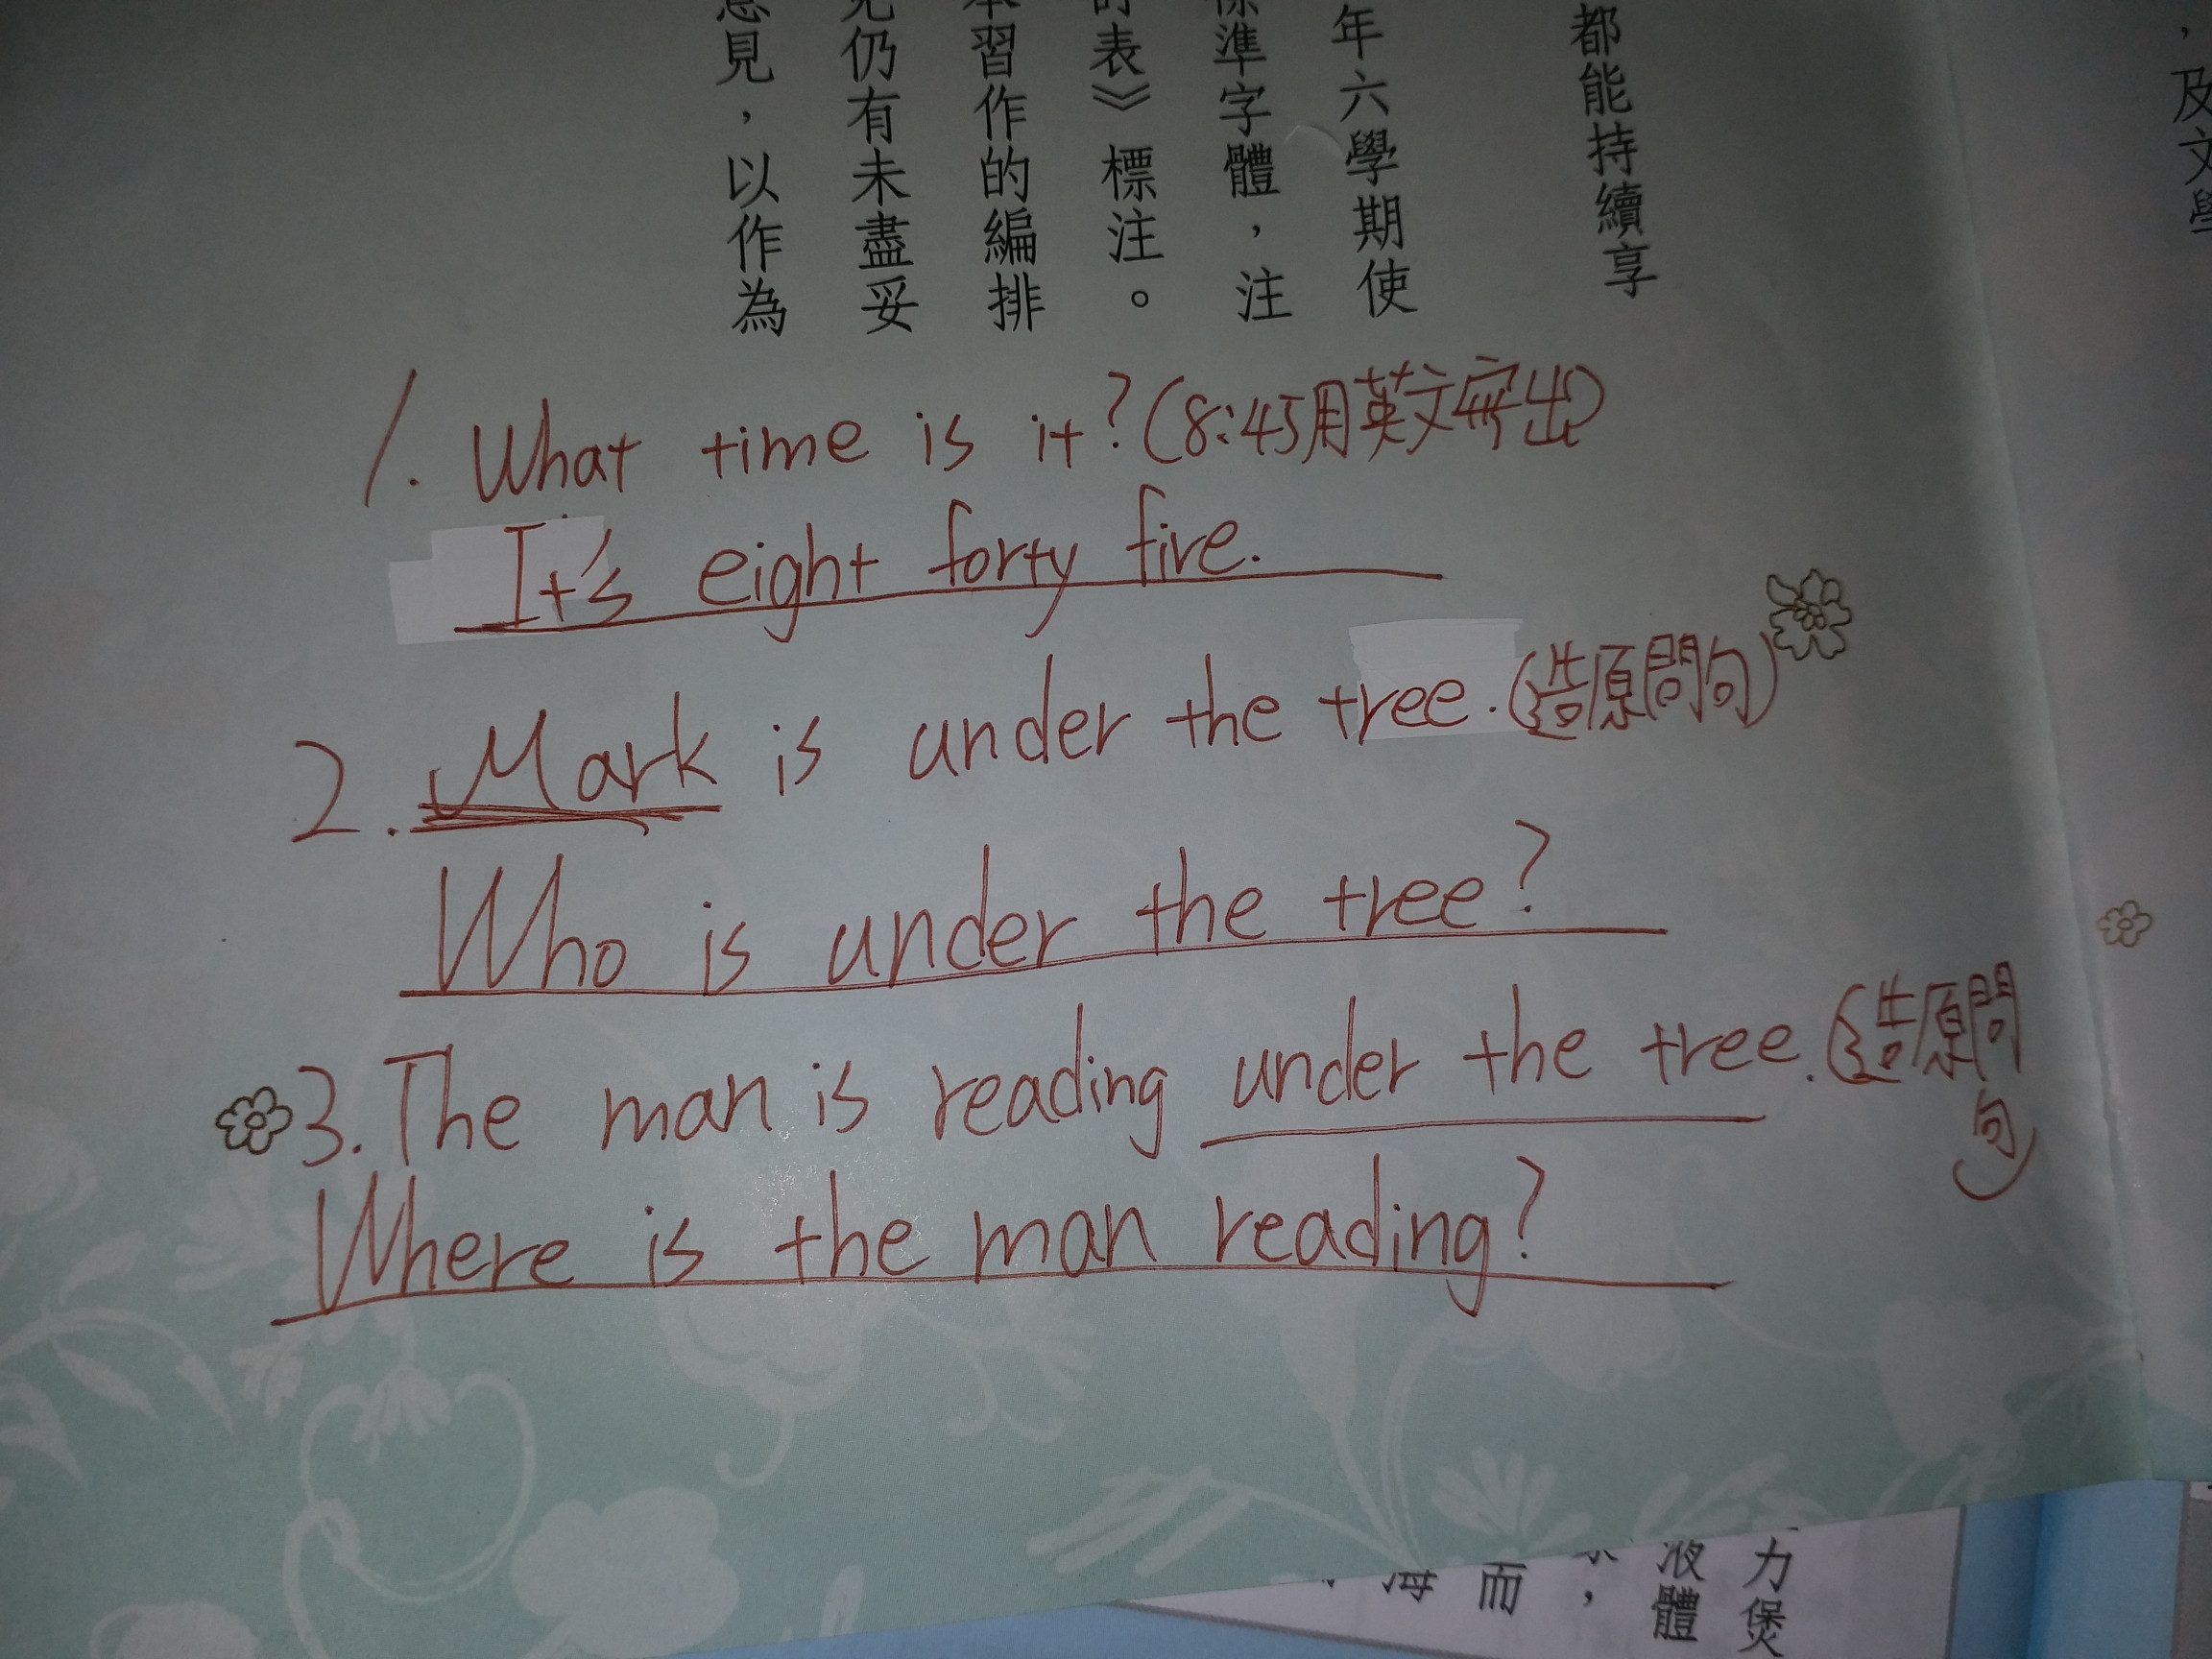 都能持續享
年六學期使
標準字體，注
表》標注。
本習作的編排
仍有未盡妥
意見，以作為
，及文學
1. What time is it? (8:45用英文寫出)
It's eight forty five.
2. Mark is under the tree. (造原問句)
Who is under the tree?
3. The man is reading under the tree. (造原問
句)
Where is the man reading?
力煲
液體
，
而
海